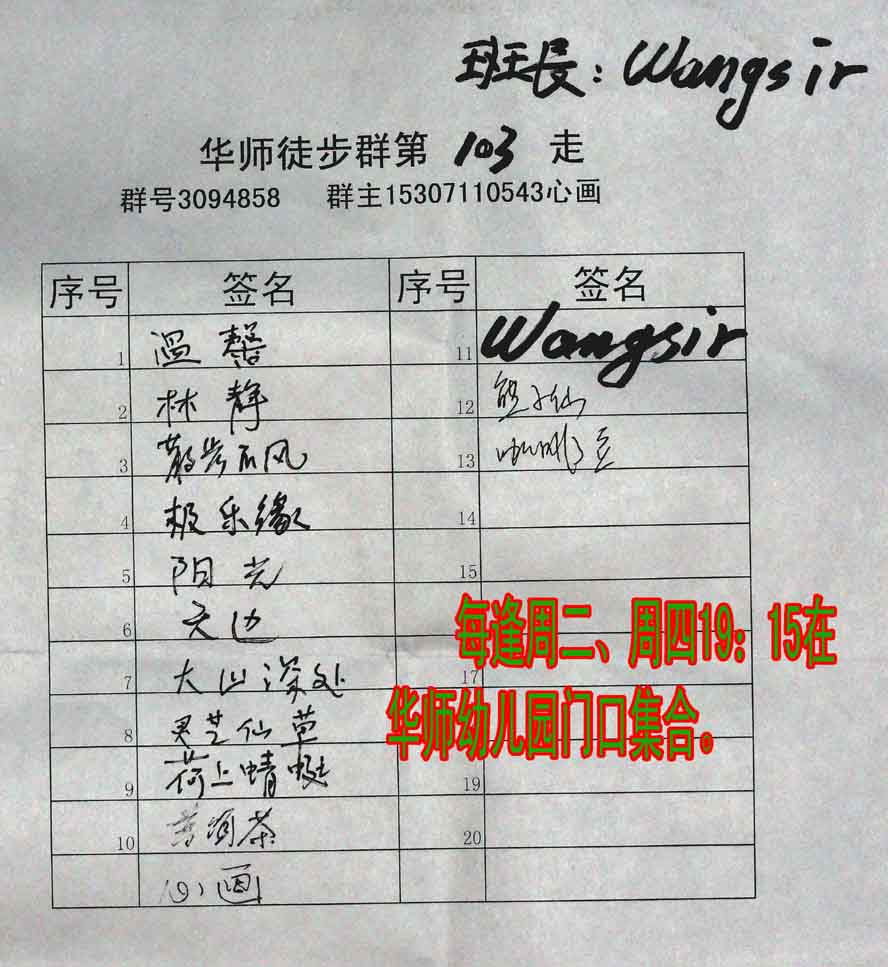 班长：Wangsir
华师徒步群第 103 走
群号3094858 群主15307110543心画
序号 签名 序号 签名
1 温馨 11 Wangsir
2 林静 12 熊小仙
3 散步听风 13 咖啡豆
4 极乐缘 14
5 阳光 15
6 天边
7 大山深处 17
8 灵芝仙草
9 荷上蜻蜓 19
10 茶 20
心画
每逢周二、周四19：15在
华师幼儿园门口集合。